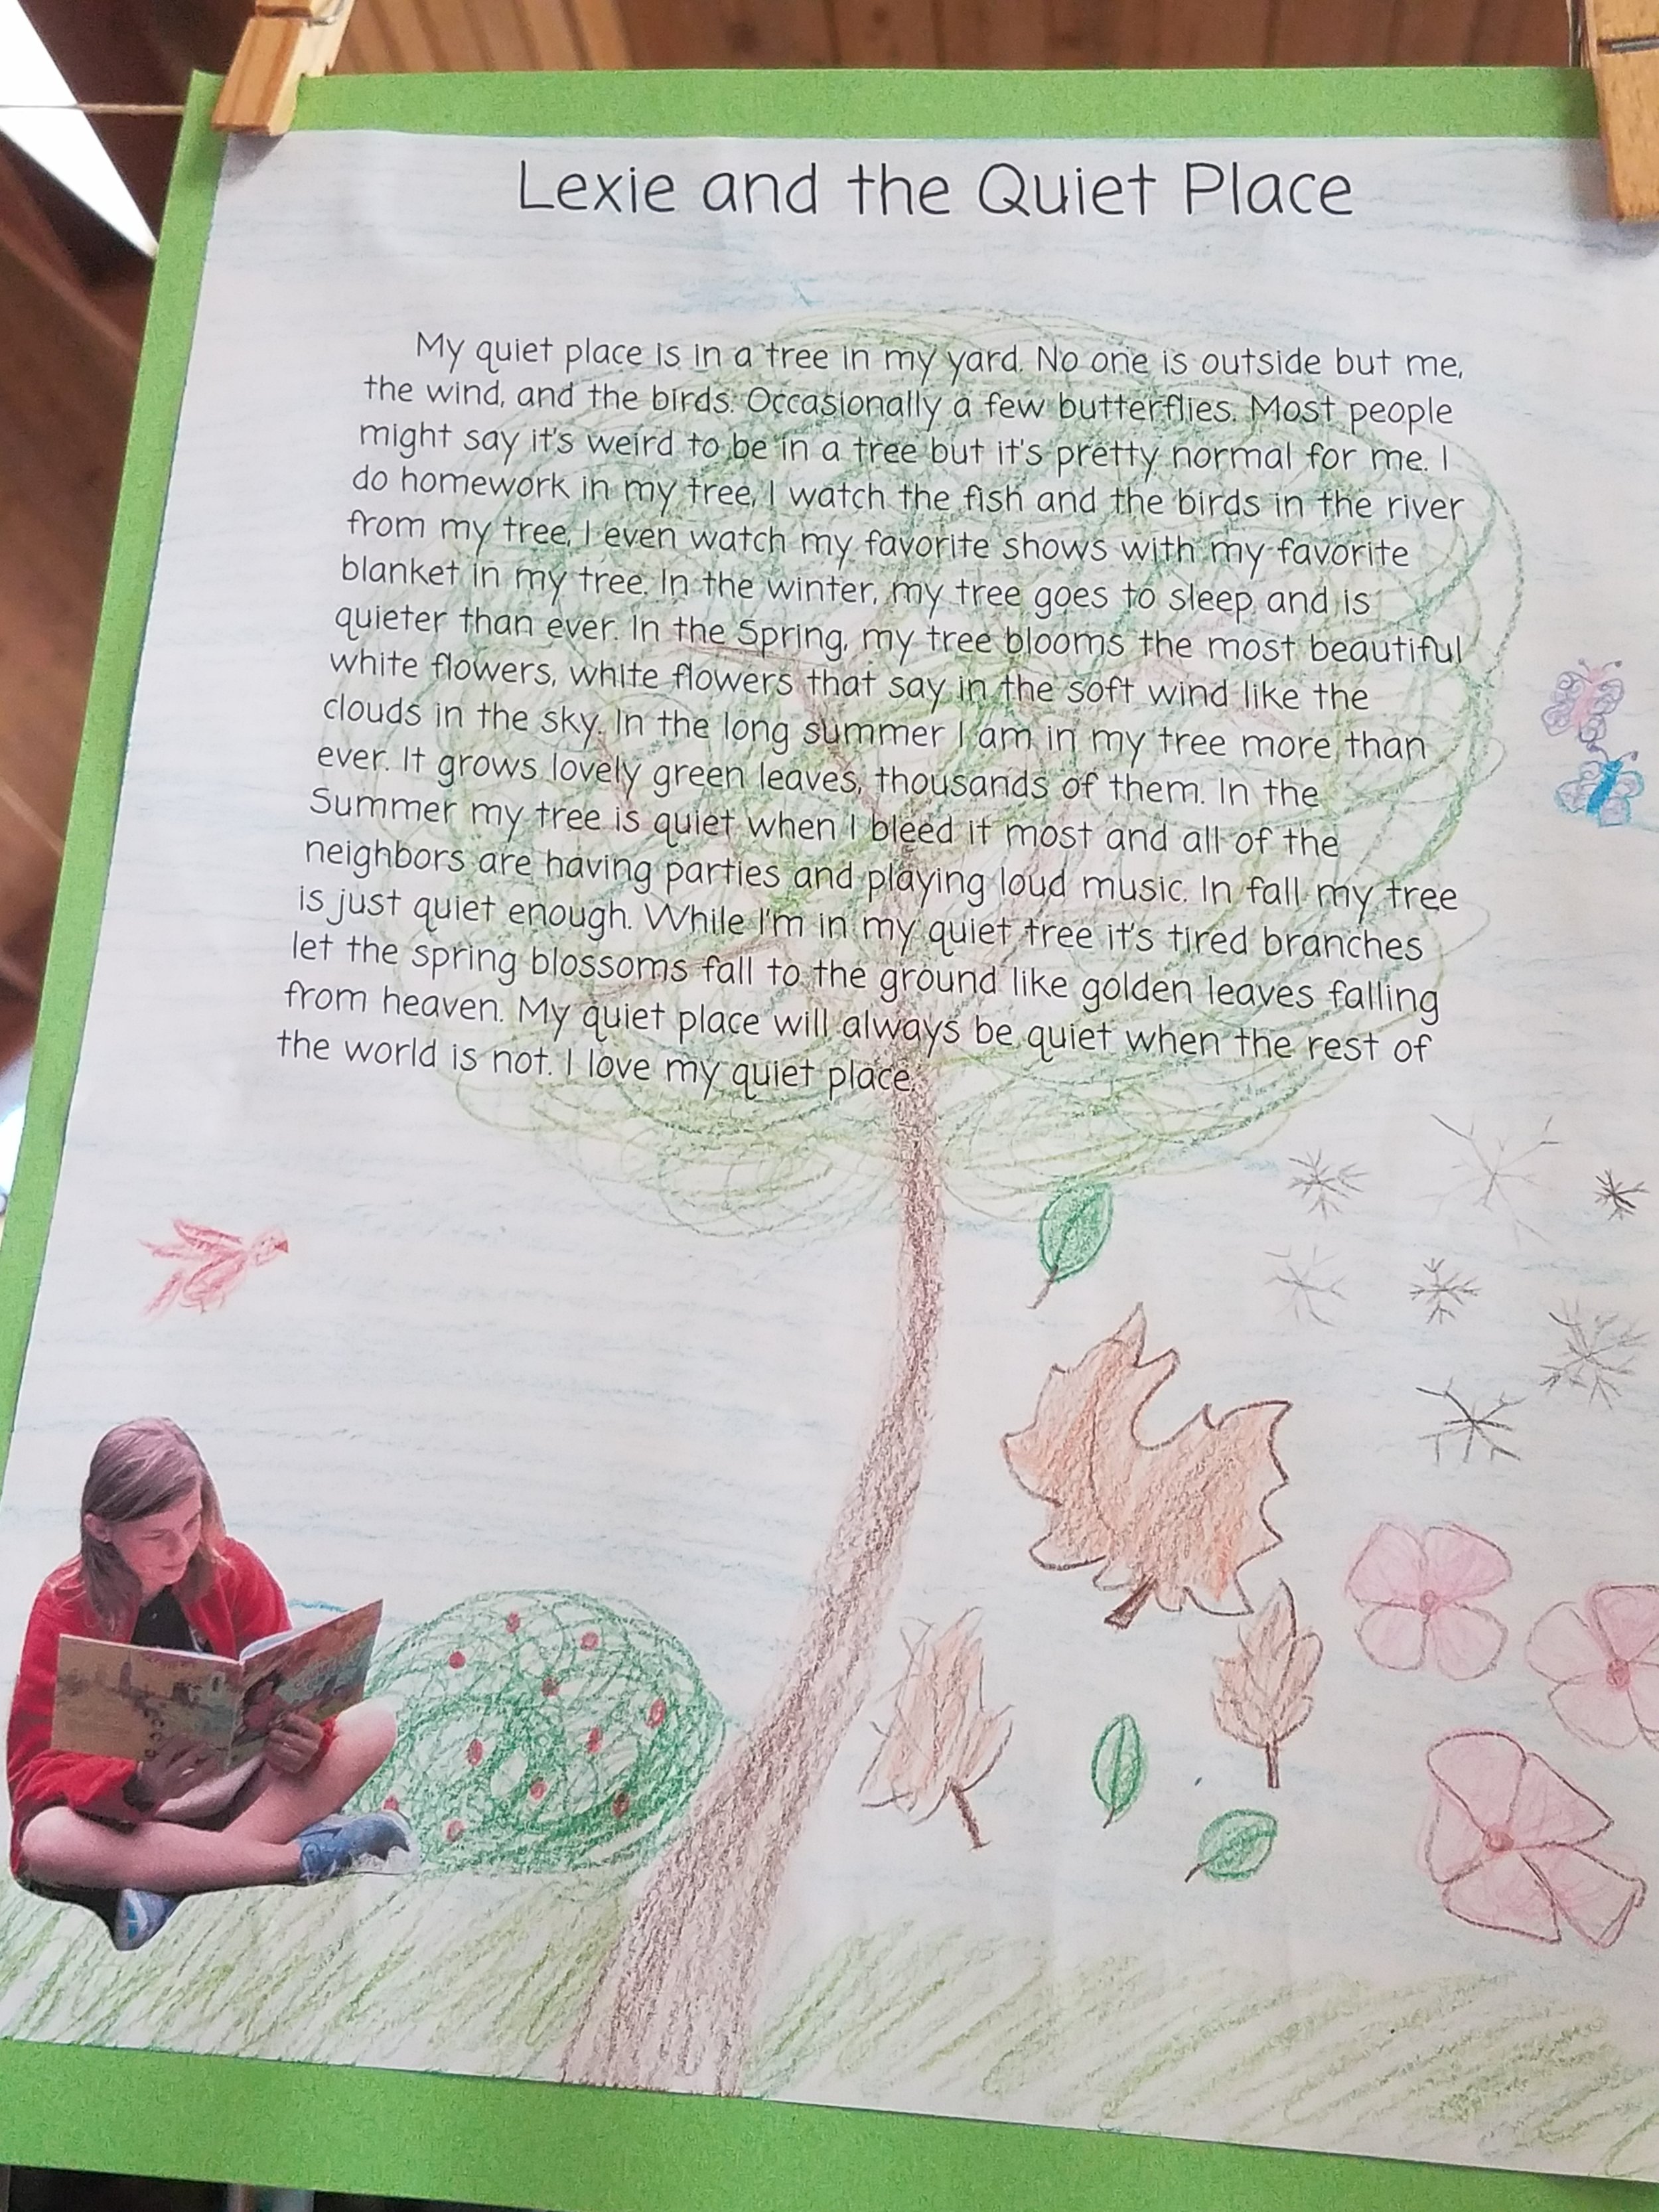 Lexie and the Quiet Place
My quiet place is in a tree in my yard. No one is outside but me,
the wind, and the birds. Occasionally a few butterflies. Most people
might say it's weird to be in a tree but it's pretty normal for me. I
do homework in my tree, I watch the fish and the birds in the river
from my tree, I even watch my favorite shows with my favorite
blanket in my tree. In the winter, my tree goes to sleep and is
quieter than ever. In the Spring, my tree blooms the most beautiful
white flowers, white flowers that say in the soft wind like the
clouds in the sky. In the long summer I am in my tree more than
ever. It grows lovely green leaves, thousands of them. In the
Summer my tree is quiet when I bleed it most and all of the
neighbors are having parties and playing loud music. In fall my tree
is just quiet enough. While I'm in my quiet tree it's tired branches
let the spring blossoms fall to the ground like golden leaves falling
from heaven. My quiet place will always be quiet when the rest of
the world is not. I love my quiet place.